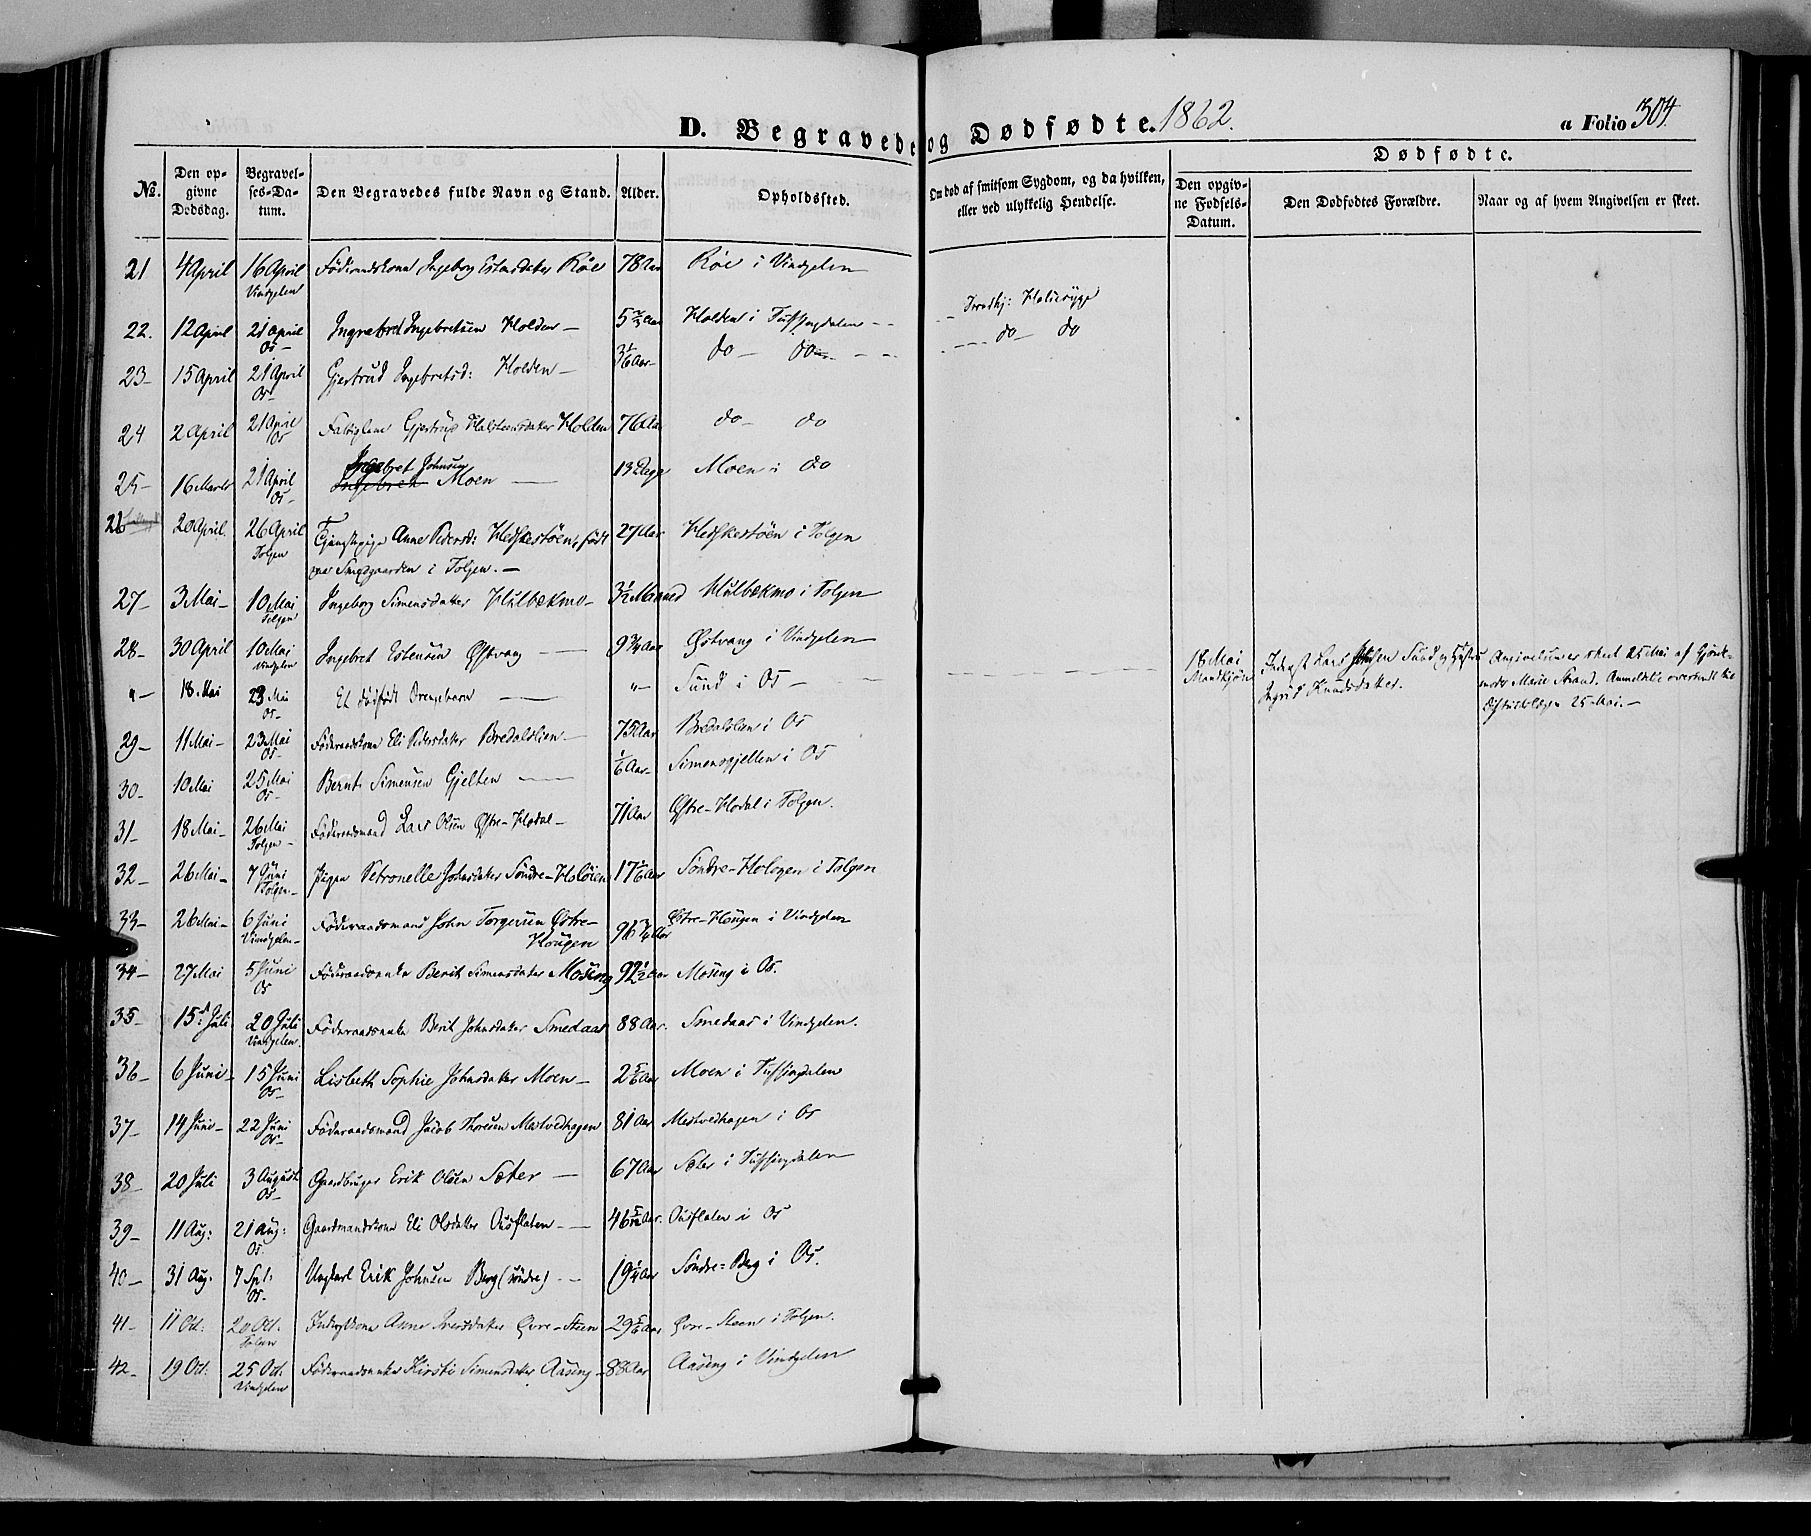 D. Begravede og Dødfødte. 1862.
a Folio 304.
No. Den opgivne Dødsdag. Begravelses-Datum. Den Begravedes fulde Navn og Stand. Alder. Opholdssted. Om død af smitsom Sygdom, og da hvilken, eller ved ulykkelig Hendelse. Dødfødte. Den opgivne Fødsels-Datum. Den Dødfødtes Forældre. Naar og af hvem Angivelsen er skeet.
21 4 April 16 April Vindgelen Föderaadskone Ingeborg Estensdatter Röe 78 Aar Röe i Vindgelen
22. 12 April 21 April Os Ingebret Ingebretsen Holden 5 Aar Holden i Tufsingdalen
23 15 April 21 April Os Gjertrud Ingebretsd: Holden 3 1/6 Aar do do do do
24 2 April 21 April Os Gjertrud Holden 76 Aar do do
25 16 Marts 21 April Os Ingebret Johnsen Moen 13 Dage Moen i do
26 20 April. 26 April Tolgen Tjenestepige Anne Pedersd: født
paa Smedgaarden i Tolgen. 27 Aar i Tolgen
27 3 Mai 10 Mai Tolgen Ingeborg Simensdatter Hulbækmo 3 1/2 Maaned Hulbækmo i Tolgen
28 30 April 10 Mai Vindgelen Ingebret Estensen Østvang 9 3/4 Aar Østvang i Vindgelen
" 18 Mai 23 Mai Os Et dødfødt Drengebarn " Sund i Os 18 Mai Mandkjøn Inderst Lars Sund og Hustru
Ingrid Knudsdatter. Angivelsen er skeet 25 Mai af Gjordemoder Marie Strand.
25 Mai.
29 11 Mai 23 Mai Os Föderaadskone Eli Pedersdatter Bredalslien 75 Aar Bredalslien i Os
30 10 Mai 25 Mai Os Bernt Simensen Gjelten 1/6 Aar Simensgjelten i Os
31 18 Mai 26 Mai Tolgen Föderaadsmand Lars Olsen Østre-Hodal 71 Aar Østre-Hodal i Tolgen.
32 26 Mai 7 Juni Tolgen Pigen Petronelle Johnsdatter Söndre-Holöien 17 1/6 Aar Söndre-Holögen i Tolgen
33 26 Mai 6 Juni Vindgelen Föderaadsmand John Torgersen Østre-Hougen 96 3/4 Aar Østre-Hougen i Vindgelen
34 27 Mai 5 Juni Os Föderaadsenke Berit Simensdatter Moseng 92 1/2 Aar Moseng i Os.
35 15 Juli 20 Juli Vindgelen. Föderaadsenke Berit Johnsdatter Smedaas 88 Aar. Smedaas i Vindgelen.
36 6 Juni 15 Juni Os Lisbeth Sophie Johnsdatter Moen 2 5/6 Aar Moen i Tufsingdalen
37 14 Juni 22 Juni Os Föderaadsmand Jacob Thoresen Mastvedhagen 81 Aar Mastvedhagen i Os
38 20 Juli 3 August Os Gaardbruger Erik Olsen Sæter 67 Aar Sæter i Tufsingdalen
39 11 Aug: 21 Aug: Os. Gaardmandskone Eli Olsdatter Ousflaten 46 5/12 Aar. Ousflaten i Os
40 31 Aug: 7 Spt: Os Ungkarl Erik Johnsen Berg (söndre) 19 1/4 Aar Söndre-Berg i Os.
41 11 Oct: 20 Oct. Tolgen Anne Iversdatter Øvre-Steen 29 5/6 Aar Øvre-Steen i Tolgen.
42 19 Oct: 25 Oct: Vindgelen Föderaadsenke Kirsti Simensdatter Aaseng 88 Aar Aaseng i Vindgelen